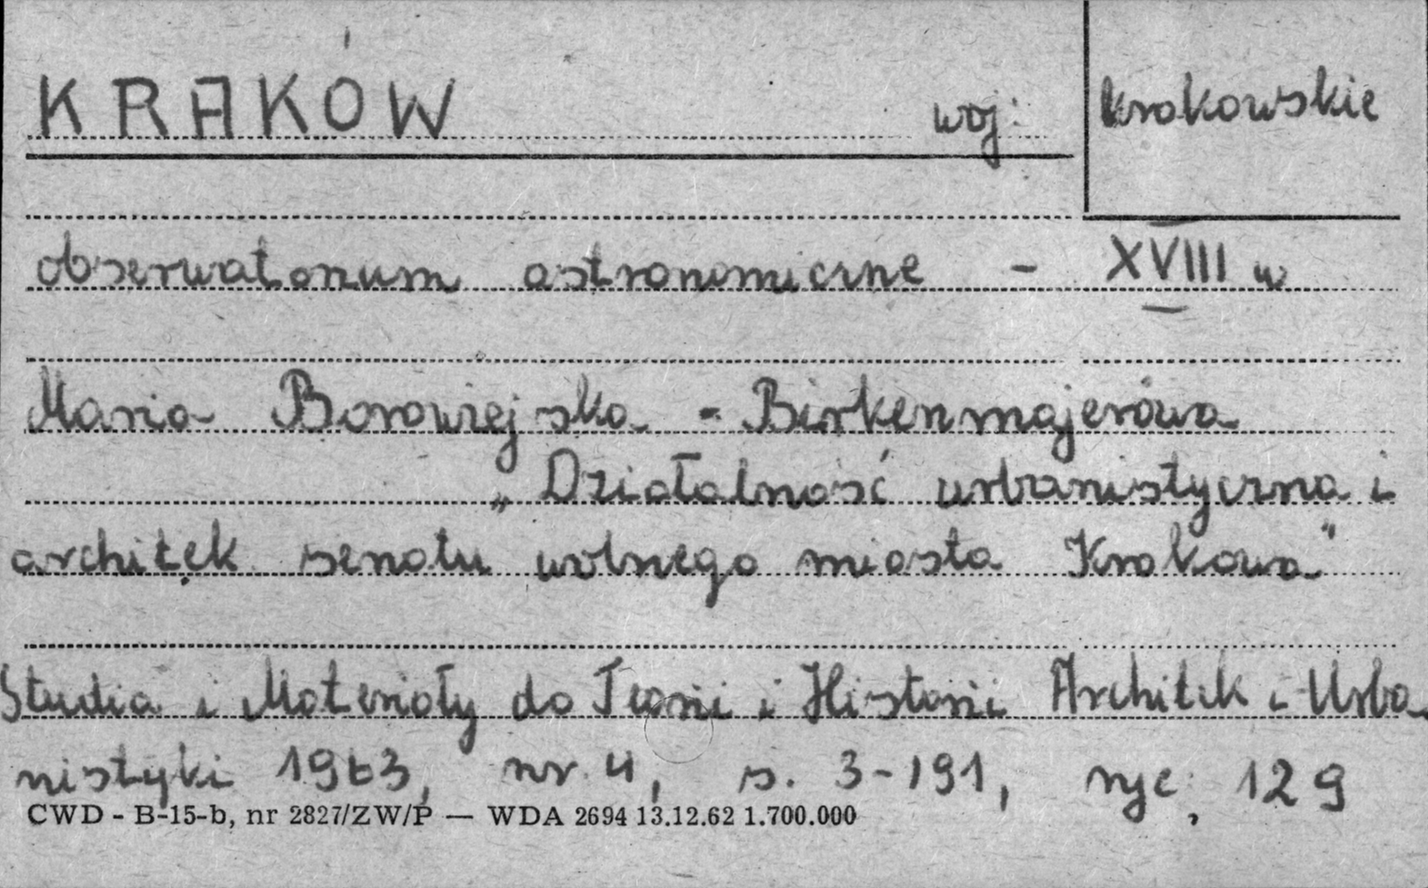 KRAKÓW woj: krakowskie
obserwatorium astronomiczne - XVIII w
Maria Borowiejska - Birkenmajerowa
„Działalność urbanistyczna i
architek senatu wolnego miasta Krakowa"
Studia i Materiały do Teorii i Historii Architek i Urba
nistyki 1963, nr. 4, s. 3-191, ryc. 129
CWD - B-15-b, nr 2827/ZW/P — WDA 2694 13.12.62 1.700.000